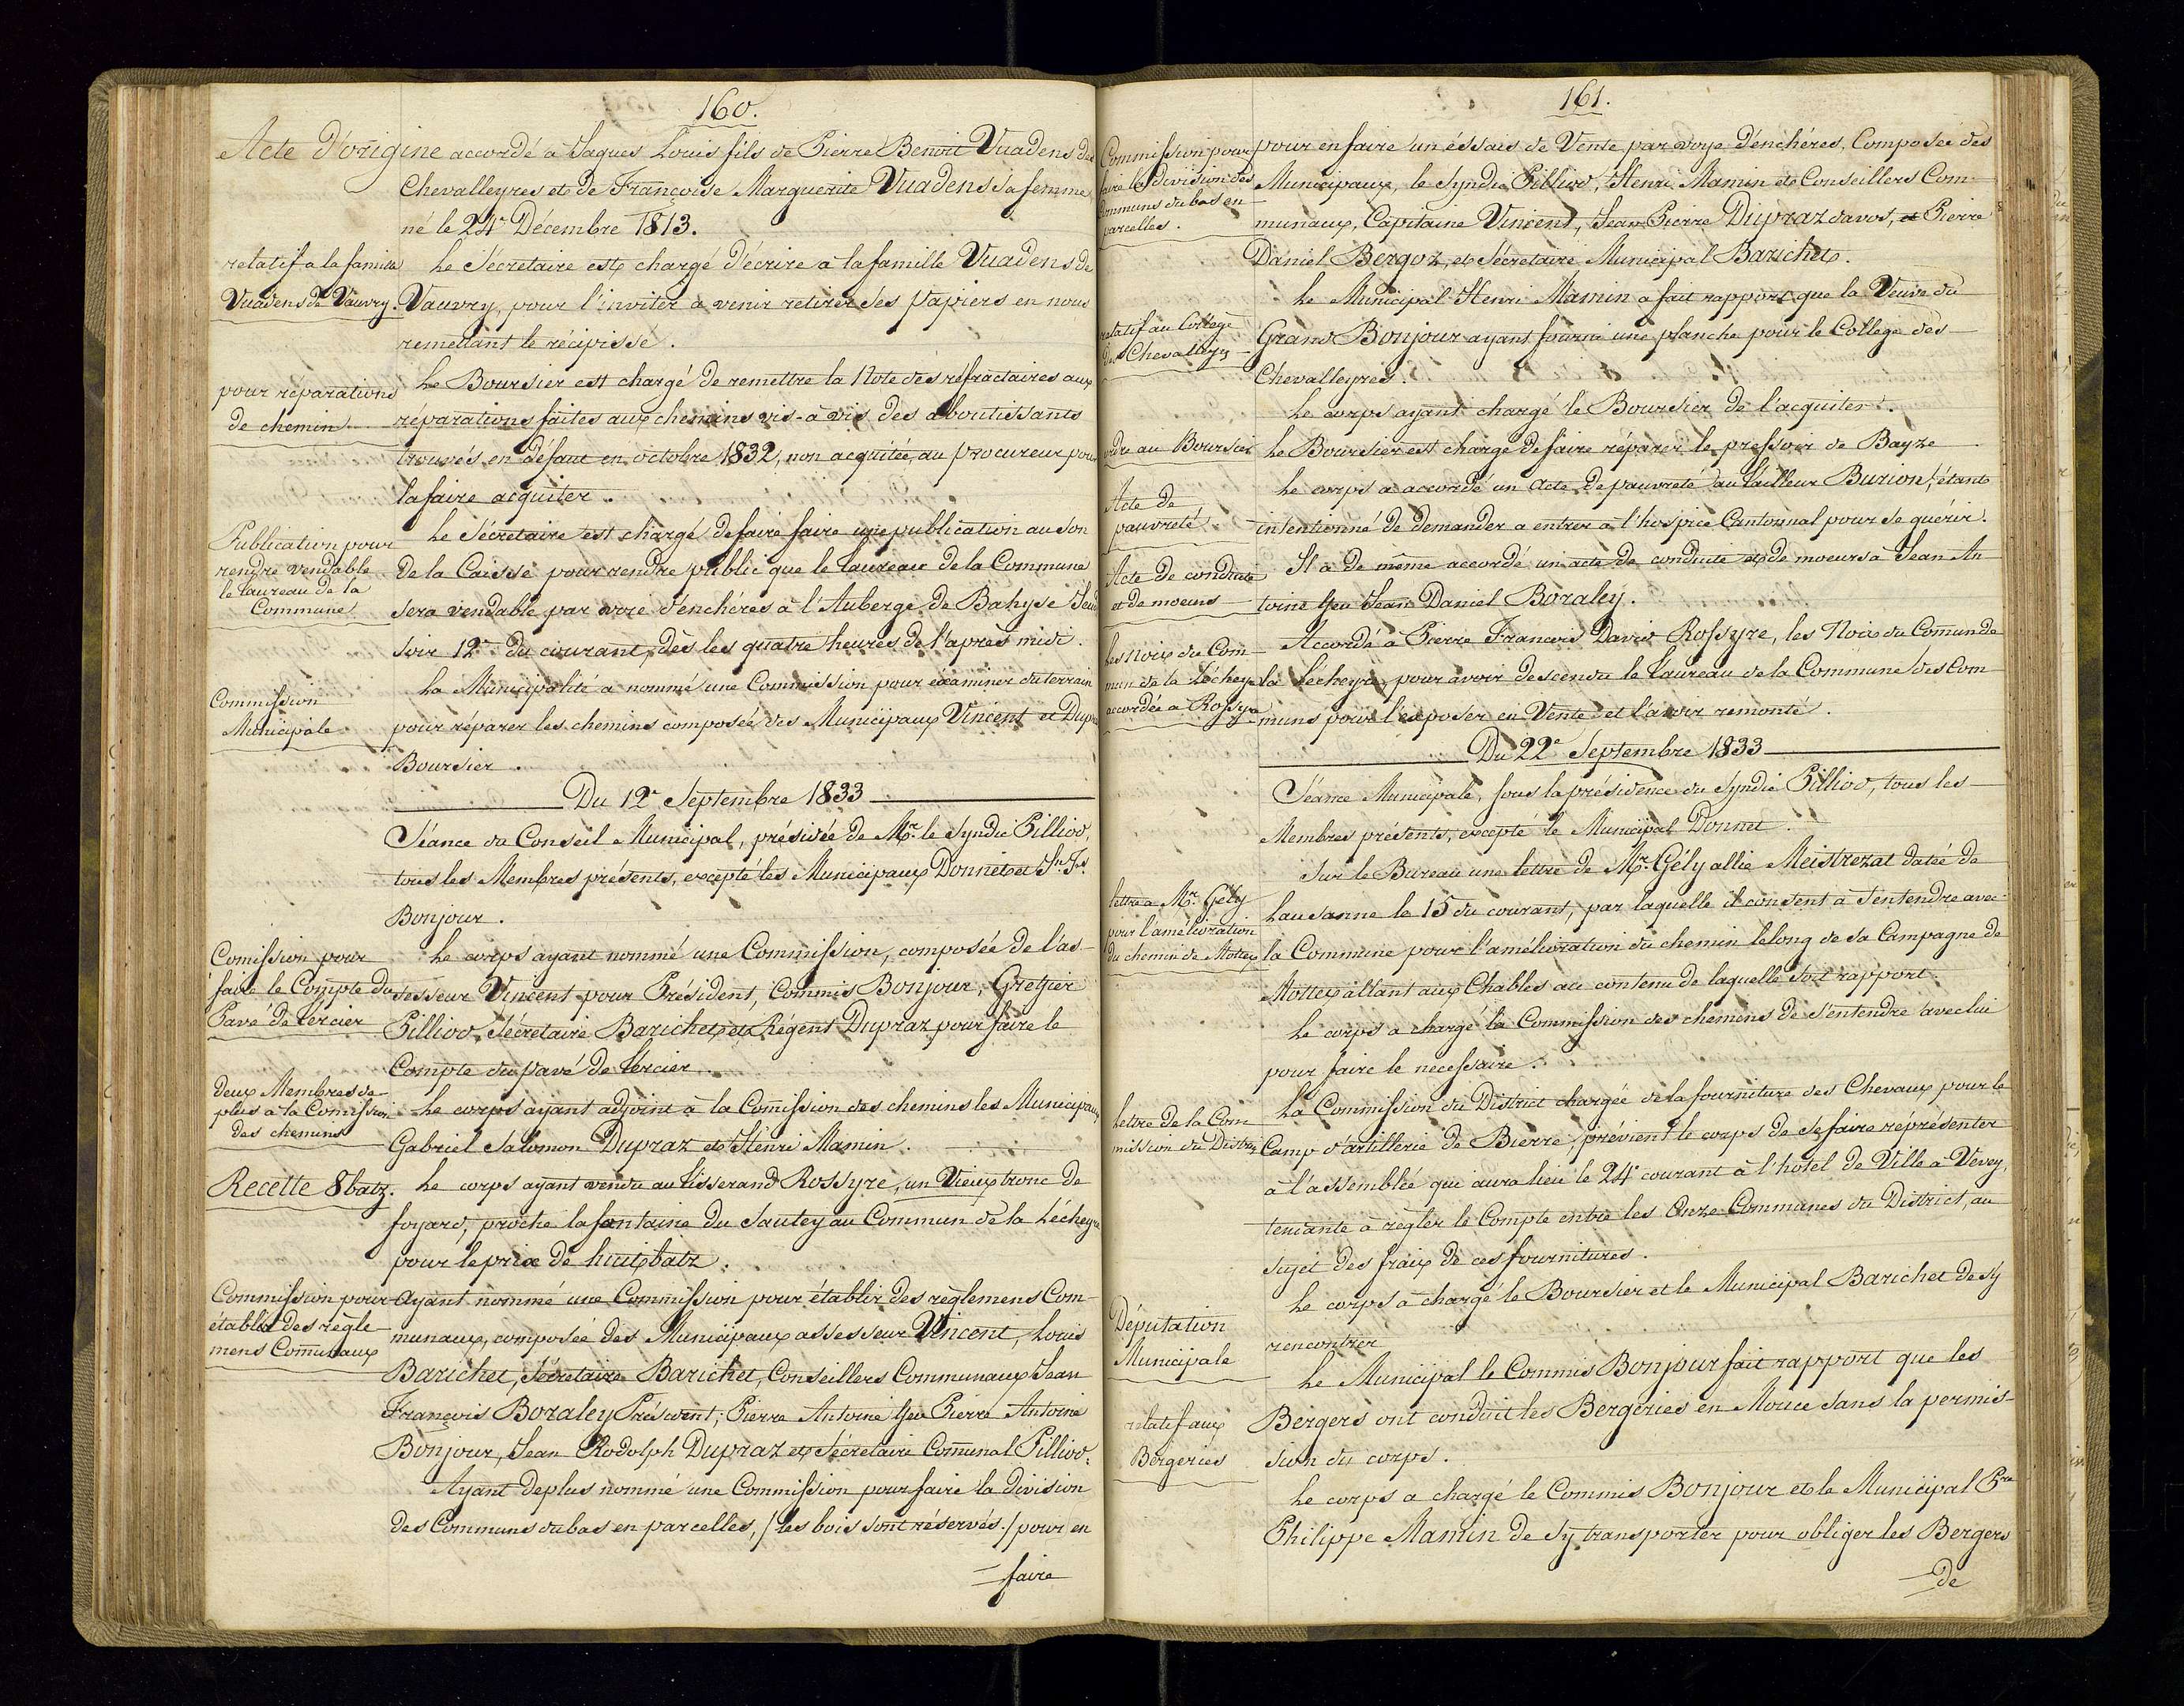 160.
Acte d'origine accordé à Jaques Louis fils de Pierre Benoit Vuadens des
Chevalleyres et de Françoise Marguerite Vuadens sa femme
né le 24e Décembre 1813.
relatif a la famille
Vuadens de Vauvry.
Le Sécretaire est chargé d'écrire à la famille Vuadens de
Vauvry, pour l'inviter à venir retirer ses papiers en nous
remettant le récipissé.
pour réparations
de chemin
Le Boursier est chargé de remettre la Note des réfractaires aux
réparations faites aux chemins vis-à-vis des aboutissants
trouvés en défaut en octobre 1832, non acquitée, au procureur pour
la faire acquiter.
Publication pour
rendre vendable
le taureau de la
Commune
Le Sécretaire est chargé de faire faire une publication au son
de la Caisse pour rendre public que le taureau de la Commune
sera vendable par voie d'enchéres à l'Auberge de Bahyse Jeudi
soir 12e du courant, dès les quatre heures de l'après midi.
Commission
Municipale
La Municipalité a nommé une Commission pour éxaminer du terrain
pour réparer les chemins composée des Municipaux Vincent et Dupraz
Boursier.
Du 12e Septembre 1833
Séance du Conseil Municipal, présidée de Mr. le Syndic Pilliod,
tous les Membres présents, excepté les Municipaux Donnet et Jn. Fs.
Bonjour.
Comission pour
faire le Compte du
Pavé de Tercier
Le corps ayant nommé une Commission, composée de l'as-
sesseur Vincent pour Président, Commis Bonjour, Greffier
Pilliod, Sécretaire Barichet et Régent Dupraz pour faire le
Compte du pavé de Tercier.
deux Membres de
plus à la Comission
des chemins
Le corps ayant adjoint à la Comission des chemins les Municipaux
Gabriel Salomon Dupraz et Henri Mamin.
Recette 8 batz.
Le corps ayant vendu au tisserand Rossyre, un vieux tronc de
foyard, proche la fontaine du Sautey au Commun de la Lécheyre
pour le prix de huit batz.
Commission pour
établir des régle-
mens Comunaux
Ayant nommé une Commission pour établir des réglemens Com-
munaux, composée des Municipaux assesseur Vincent, Louis
Barichet, Sécretaire Barichet, Conseillers Communaux Jean
François Boraley Président, Pierre Antoine feu Pierre Antoine
Bonjour, Jean Rodolph Dupraz et Sécretaire Comunal Pilliod.
Ayant deplus nommé une Commission pour faire la division
des Communs du bas en parcelles, / les bois sont réservés. / pour en
faire
161.
Commission pour
faire la division des
Communs du bas en
parcelles.
pour en faire un éssais de Vente par voye d'enchéres, Composée des
Municipaux, le Syndic Pilliod, Henri Mamin et Conseillers Com-
munaux, Capitaine Vincent, Jean Pierre Dupraz davos, et Pierre
Daniel Bergoz, et Sécretaire Municipal Barichet.
relatif au College
des Chevalleyres
Le Municipal Henri Mamin a fait rapport que la Veuve du
Grand Bonjour ayant fourni une planche pour le College des
Chevalleyres.
Le corps ayant chargé le Boursier de l'acquiter.
ordre au Boursier
Le Boursier est chargé de faire réparer le pressoir de Bayze
Acte de
pauvreté
Le corps a accordé un acte de pauvreté au tailleur Burion, étant
intentionné de demander a entrer à l'hospice Cantonnal pour se guérir.
Acte de conduite
et de moeurs
Il a de même accordé un acte de conduite et de moeurs à Jean An-
toine feu Jean Daniel Boraley.
Les noix du Com-
mun de la Lécheyre
accordée a Rossyre
Accordé à Pierre Francois David Rossyre, les Noix du Comun de
la Lécheyre, pour avoir descendu le taureau de la Commune des Com
muns pour l'exposer en Vente et l'avoir remonté.
Du 22e Septembre 1833
Séance Municipale, sous la présidence du Syndic Pilliod, tous les
Membres présents, excepté le Municipal Donnet.
lettre a Mr. Gély
pour l'amélioration
du chemin de Mottex
Sur le Bureau une lettre de Mr. Gély allié Meistrezat datée de
Lausanne le 15 du courant, par laquelle il consent à s'entendre avec
la Commune pour l'amélioration du chemin le long de sa Campagne de
Mottex allant aux Chables au contenu de laquelle soit rapport.
Le corps a chargé la Commission des chemins de s'entendre avec lui
pour faire le necessaire.
lettre de la Com
mission du District
La Commission du District chargée de la fourniture des Chevaux pour le
Camp d'artillerie de Bierre, prévient le corps de se faire réprésenter
à l'assemblée qui aura lieu le 24e courant à l'hotel de Ville à Vevey,
tendante à régler le Compte entre les Onze Communes du District, au
sujet des fraix de ces fournitures.
Députation
Municipale
Le corps a chargé le Boursier et le Municipal Barichet de s'y
rencontrer
relatif aux
Bergeries
Le Municipal le Commis Bonjour fait rapport que les
Bergers ont conduit les Bergeries en Mouce sans la permis-
sion du corps.
Le corps a chargé le Commis Bonjour et le Municipal Pre
Philippe Mamin de s'y transporter pour obliger les Bergers
de